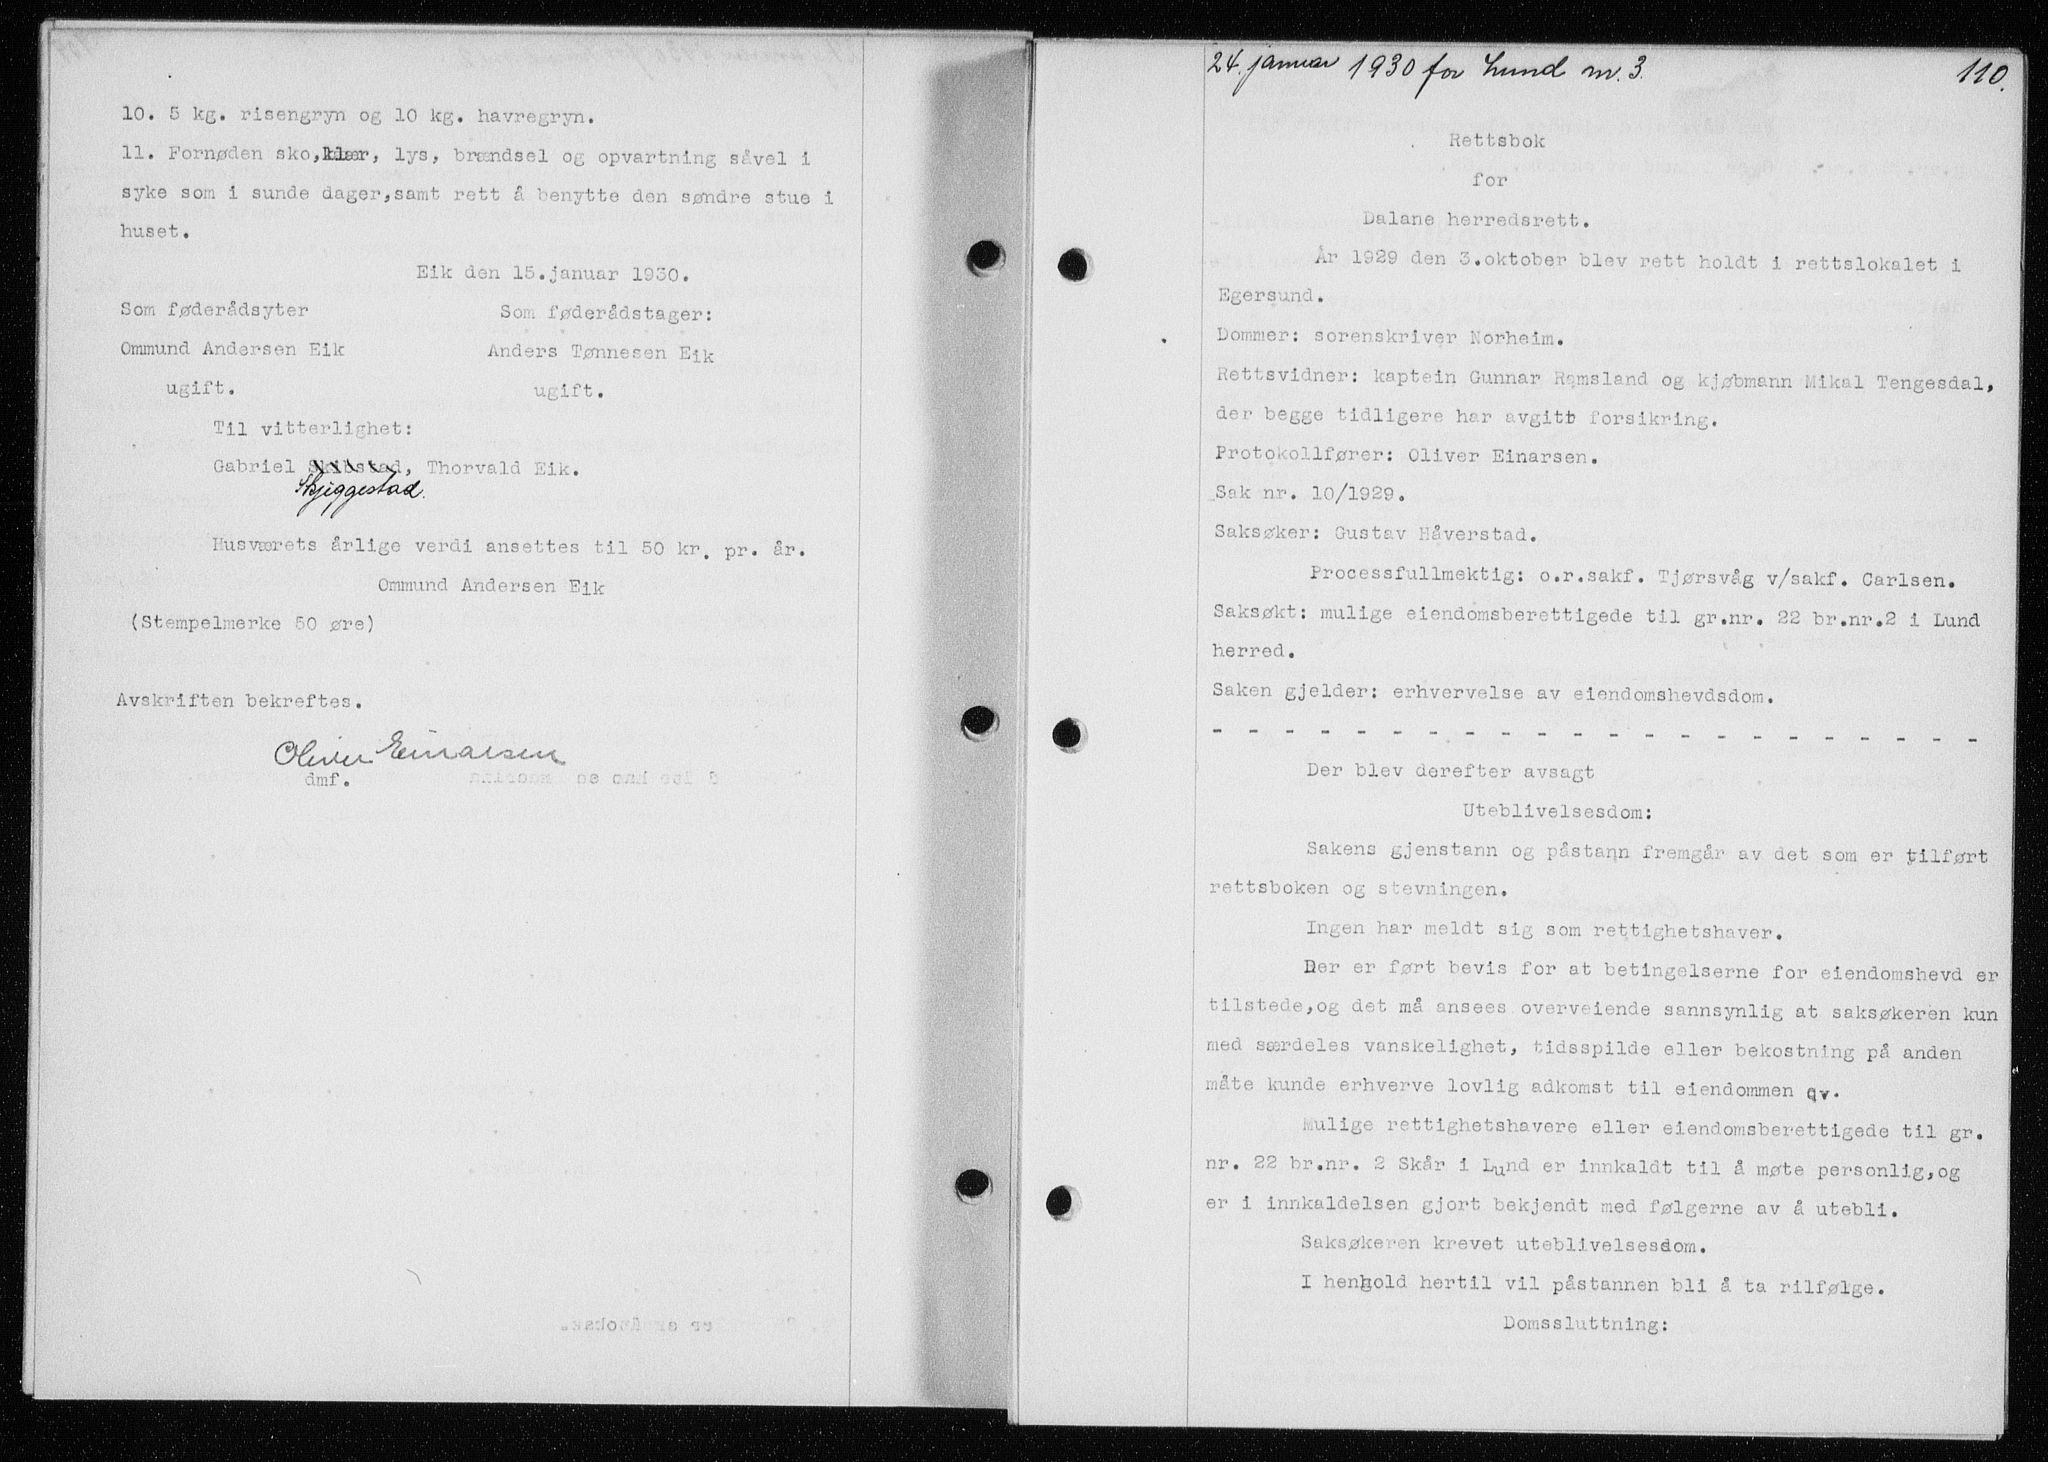 10. 5 kg. risengryn og 10 kg. havregryn.
11. Fornøden sko,klær, lys, brændsel og opvartning såvel i
syke som i sunde dager,samt rett å benytte den søndre stue i
huset.
Eik den 15.januar 1930.
Som føderådsyter Som føderådstager:
Ommund Andersen Eik Anders Tønnesen Eik
ugift. ugift.
Til vitterlighet:
Gabriel Skibstad, Thorvald Eik.
Skjeggestad.
Husværets årlige verdi ansettes til 50 kr. pr. år.
Ommund Andersen Eik
(Stempelmerke 50 øre)
Avskriften bekreftes.
Oliver Einarsen
dmf.
24. januar 1930 for Lund nr. 3. 110.
Rettsbok
for
Dalane herredsrett.
År 1929 den 3.oktober blev rett holdt i rettslokalet i
Egersund.
Dommer: sorenskriver Norheim.
Rettsvidner: kaptein Gunnar Ramsland og kjøbmann Mikal Tengesdal,
der begge tidligere har avgitt forsikring.
Protokollfører: Oliver Einarsen.
Sak nr. 10/1929.
Saksøker: Gustav Håverstad.
Processfullmektig: o.r.sakf. Tjørsvåg v/sakf. Carlsen.
Saksøkt: mulige eiendomsberettigede til gr.nr. 22 br.nr.2 i Lund
herred.
Saken gjelder: erhvervelse av eiendomshevdsdom.
- - - - - - - - - - - - - - - - - - - - - - - - - - - - - - - -
Der blev derefter avsagt
Uteblivelsesdom:
Sakens gjenstann og påstann fremgår av det som er tilført
rettsboken og stevningen.
Ingen har meldt sig som rettighetshaver.
Der er ført bevis for at betingelserne for eiendomshevd er
tilstede,og det må ansees overveiende sannsynlig at saksøkeren kun
med særdeles vanskelighet, tidsspilde eller bekostning på anden
måte kunde erhverve lovlig adkomst til eiendommen qv.
Mulige rettighetshavere eller eiendomsberettigede til gr.
nr. 22 br.nr. 2 Skår i Lund er innkaldt til å møte personlig,og
er i innkaldelsen gjort bekjendt med følgerne av å utebli.
Saksøkeren krevet uteblivelsesdom.
I henhold hertil vil påstannen bli å ta rilfølge.
Domssluttning: